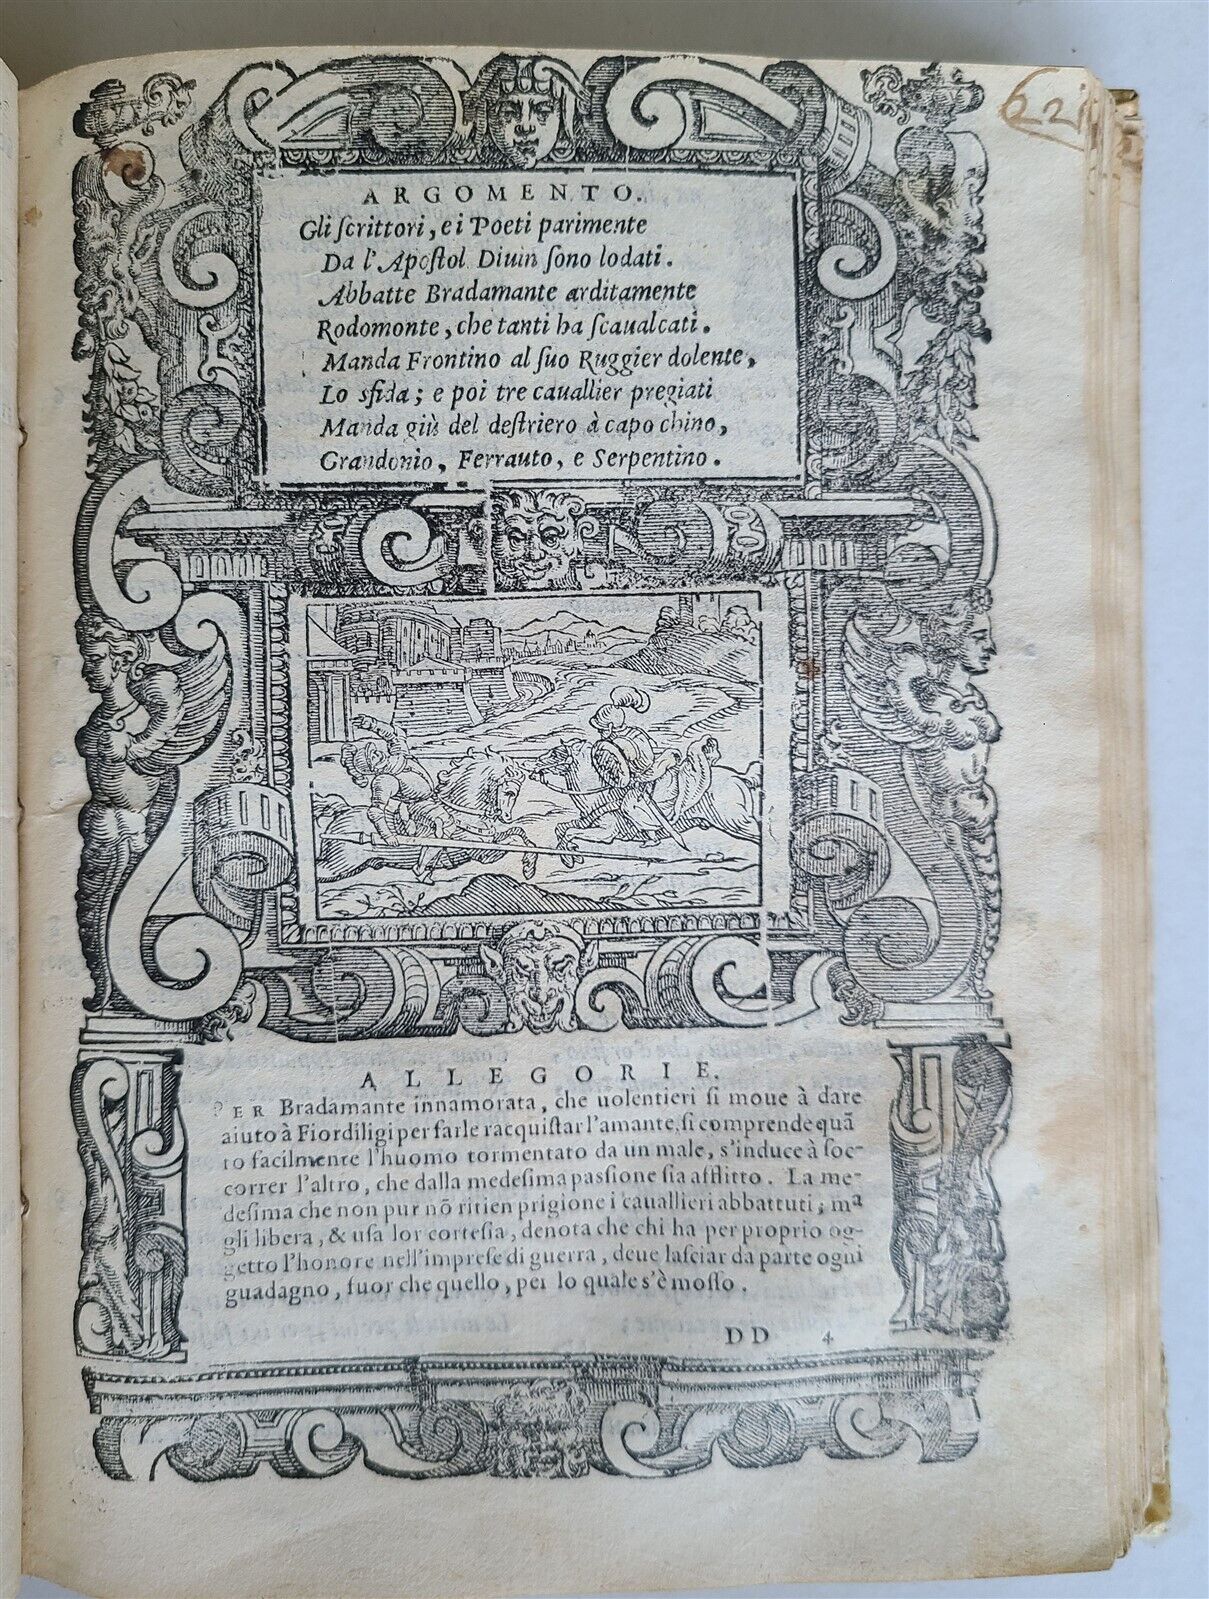 62
ARGOMENTO.
Gli ſcrittori, e i Poeti parimente
Da l'Apoſtol Diuin ſono lodati.
Abbatte Bradamante arditamente
Rodomonte, che tanti ha ſcaualcati.
Manda Frontino al ſuo Ruggier dolente,
Lo sfida; e poi tre cauallier pregiati
Manda giù del deſtriero à capo chino,
Grandonio, Ferrauto, e Serpentino.
ALLEGORIE.
PER Bradamante innamorata, che uolentieri ſi moue à dare
aiuto à Fiordiligi per farle racquiſtar l'amante, ſi comprende quã
to facilmente l'huomo tormentato da un male, s'induce à ſoc-
correr l'altro, che dalla medeſima paſſione ſia afflitto. La me-
deſima che non pur nõ ritien prigione i cauallieri abbattuti; ma
gli libera, & uſa lor corteſia, denota che chi ha per proprio og-
getto l'honore nell'impreſe di guerra, deue laſciar da parte ogni
guadagno, fuor che quello, per lo quale s'è moſſo.
DD 4